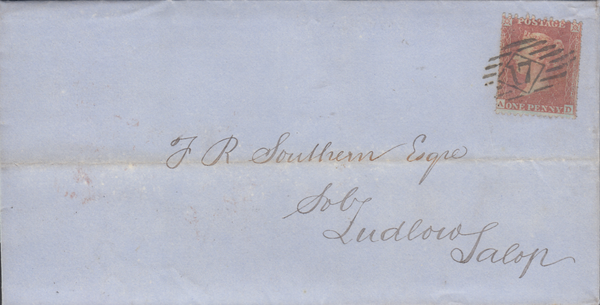 POSTAGE
17
A ONE PENNY D
F R Southern Esqre
Solr
Ludlow
Salop